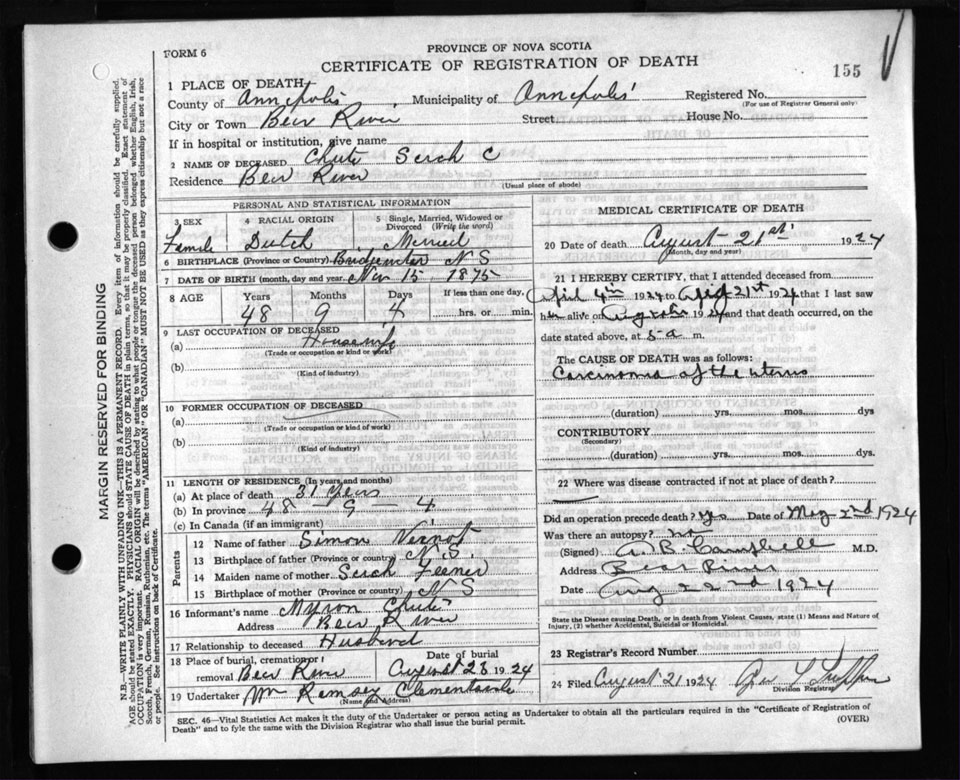 FORM 6
PROVINCE OF NOVA SCOTIA
CERTIFICATE OF REGISTRATION OF DEATH
155
1 PLACE OF DEATH
County of Annapolis Municipality of Annapolis Registered No.
(For use of Registrar General only)
City or Town Bear River Street House No.
If in hospital or institution, give name
2 NAME OF DECEASED Chute Sarah C
Residence Bear River
(Usual place of abode)
PERSONAL AND STATISTICAL INFORMATION
3 SEX 4 RACIAL ORIGIN 5 Single, Married, Widowed or Divorced (Write the word)
Female Dutch Married
6 BIRTHPLACE (Province or Country) Bridgewater N S
7 DATE OF BIRTH (month, day and year) Nov 15 1875
8 AGE Years Months Days If less than one day,
48 9 4 hrs. or min.
9 LAST OCCUPATION OF DECEASED
(a) Housewife
(Trade or occupation or kind of work)
(b)
(Kind of industry)
10 FORMER OCCUPATION OF DECEASED
(a)
(Trade or occupation or kind of work)
(b)
(Kind of industry)
11 LENGTH OF RESIDENCE (In years and months)
(a) At place of death 31 years
(b) In province 48 - 9 - 4
(c) In Canada (if an immigrant)
Parents
12 Name of father Simon Varnot
13 Birthplace of father (Province or country) N.S.
14 Maiden name of mother Sarah Feener
15 Birthplace of mother (Province or country) N S
16 Informant's name Myron Chute
Address Bear River
17 Relationship to deceased Husband
18 Place of burial, cremation or removal Bear River Date of burial August 23 1924
19 Undertaker Wm Ramsay Clementsvale
(Name and Address)
MEDICAL CERTIFICATE OF DEATH
20 Date of death August 21st 1924
(Month, day and year)
21 I HEREBY CERTIFY, that I attended deceased from
April 4th 1924 to 21st 1924 that I last saw
her alive on 1924 and that death occurred, on the
date stated above, at 5 a m.
The CAUSE OF DEATH was as follows:
Carcinoma of the uterus
(duration) yrs. mos. dys
CONTRIBUTORY
(Secondary)
(duration) yrs. mos. dys.
22 Where was disease contracted if not at place of death?
Did an operation precede death? yes Date of May 2nd 1924
Was there an autopsy? no
(Signed) A. B. Campbell M.D.
Address Bear River
Date Aug 22nd 1924
State the Disease causing Death, or in death from Violent Causes, state (1) Means and Nature of Injury, (2) whether Accidental, Suicidal or Homicidal.
23 Registrar's Record Number
24 Filed August 21 1924
Division Registrar
SEC. 46—Vital Statistics Act makes it the duty of the Undertaker or person acting as Undertaker to obtain all the particulars required in the "Certificate of Registration of
Death" and to fyle the same with the Division Registrar who shall issue the burial permit. (OVER)
MARGIN RESERVED FOR BINDING
N.B.—WRITE PLAINLY WITH UNFADING INK—THIS IS A PERMANENT RECORD. Every item of information should be carefully supplied.
AGE should be stated EXACTLY. PHYSICIANS should STATE CAUSE OF DEATH in plain terms, so that it may be properly classified. Exact statement of
OCCUPATION is very important. RACIAL ORIGIN will be described by stating to what people or tongue the deceased person belonged whether English, Irish,
Scotch, French, German, Russian, Ruthenian, etc. The terms "AMERICAN" OR "CANADIAN" MUST NOT BE USED as they express citizenship but not a race
or people. See instructions on back of Certificate.